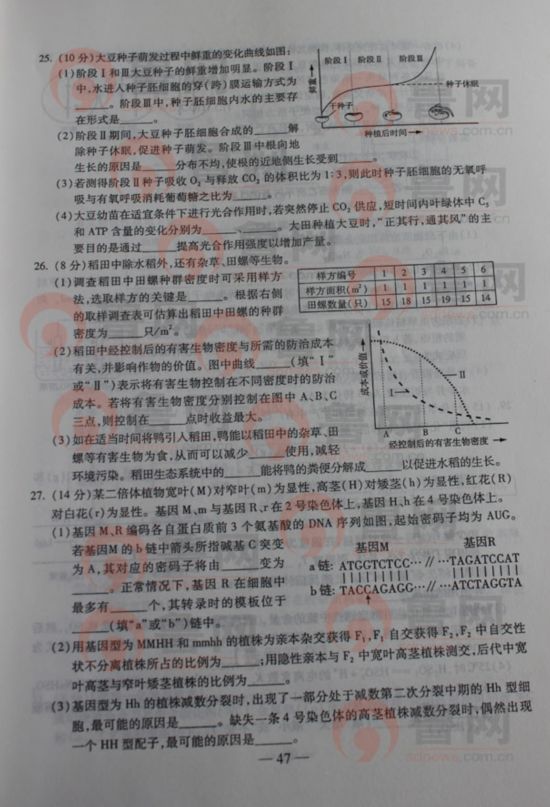 25.(10分)大豆种子萌发过程中鲜重的变化曲线如图:
(1)阶段Ⅰ和Ⅲ大豆种子的鲜重增加明显。阶段Ⅰ
中,水进入种子胚细胞的穿(跨)膜运输方式为
______。阶段Ⅲ中,种子胚细胞内水的主要存
在形式是______。
(2)阶段Ⅱ期间,大豆种子胚细胞合成的______解
除种子休眠,促进种子萌发。阶段Ⅲ中根向地
生长的原因是______分布不均,使根的近地侧生长受到______。
阶段Ⅰ 阶段Ⅱ 阶段Ⅲ
鲜重
种子休眠
干种子
种植后时间
(3)若测得阶段Ⅱ种子吸收O₂与释放CO₂的体积比为1:3,则此时种子胚细胞的无氧呼
吸与有氧呼吸消耗葡萄糖之比为______。
(4)大豆幼苗在适宜条件下进行光合作用时,若突然停止CO₂供应,短时间内叶绿体中C₅
和ATP含量的变化分别为______、______。大田种植大豆时,“正其行,通其风”的主
要目的是通过______提高光合作用强度以增加产量。
26.(8分)稻田中除水稻外,还有杂草、田螺等生物。
(1)调查稻田中田螺种群密度时可采用样方
法,选取样方的关键是______。根据右侧
的取样调查表可估算出稻田中田螺的种群
密度为______只/m²。
样方编号 1 2 3 4 5 6
样方面积(m²) 1 1 1 1 1 1
田螺数量(只) 15 18 15 19 15 14
(2)稻田中经控制后的有害生物密度与所需的防治成本
有关,并影响作物的价值。图中曲线______(填“Ⅰ”
或“Ⅱ”)表示将有害生物控制在不同密度时的防治
成本。若将有害生物密度分别控制在图中A、B、C
三点,则控制在______点时收益最大。
成本或价值
Ⅰ
Ⅱ
A B C
经控制后的有害生物密度
(3)如在适当时间将鸭引入稻田,鸭能以稻田中的杂草、田
螺等有害生物为食,从而可以减少______使用,减轻
环境污染。稻田生态系统中的______能将鸭的粪便分解成______以促进水稻的生长。
27.(14分)某二倍体植物宽叶(M)对窄叶(m)为显性,高茎(H)对矮茎(h)为显性,红花(R)
对白花(r)为显性。基因M、m与基因R、r在2号染色体上,基因H、h在4号染色体上。
(1)基因M、R编码各自蛋白质前3个氨基酸的DNA序列如图,起始密码子均为AUG。
若基因M的b链中箭头所指碱基C突变
为A,其对应的密码子将由______变为
______。正常情况下,基因R在细胞中
最多有______个,其转录时的模板位于
______(填“a”或“b”)链中。
基因M 基因R
a链: ATGGTCTCC…//…TAGATCCAT
b链: TACCAGAGG…//…ATCTAGGTA
(2)用基因型为MMHH和mmhh的植株为亲本杂交获得F₁,F₁自交获得F₂,F₂中自交性
状不分离植株所占的比例为______;用隐性亲本与F₂中宽叶高茎植株测交,后代中宽
叶高茎与窄叶矮茎植株的比例为______。
(3)基因型为Hh的植株减数分裂时,出现了一部分处于减数第二次分裂中期的Hh型细
胞,最可能的原因是______。缺失一条4号染色体的高茎植株减数分裂时,偶然出现
一个HH型配子,最可能的原因是______。
— 47 —
鲁网
sdnews.com.cn